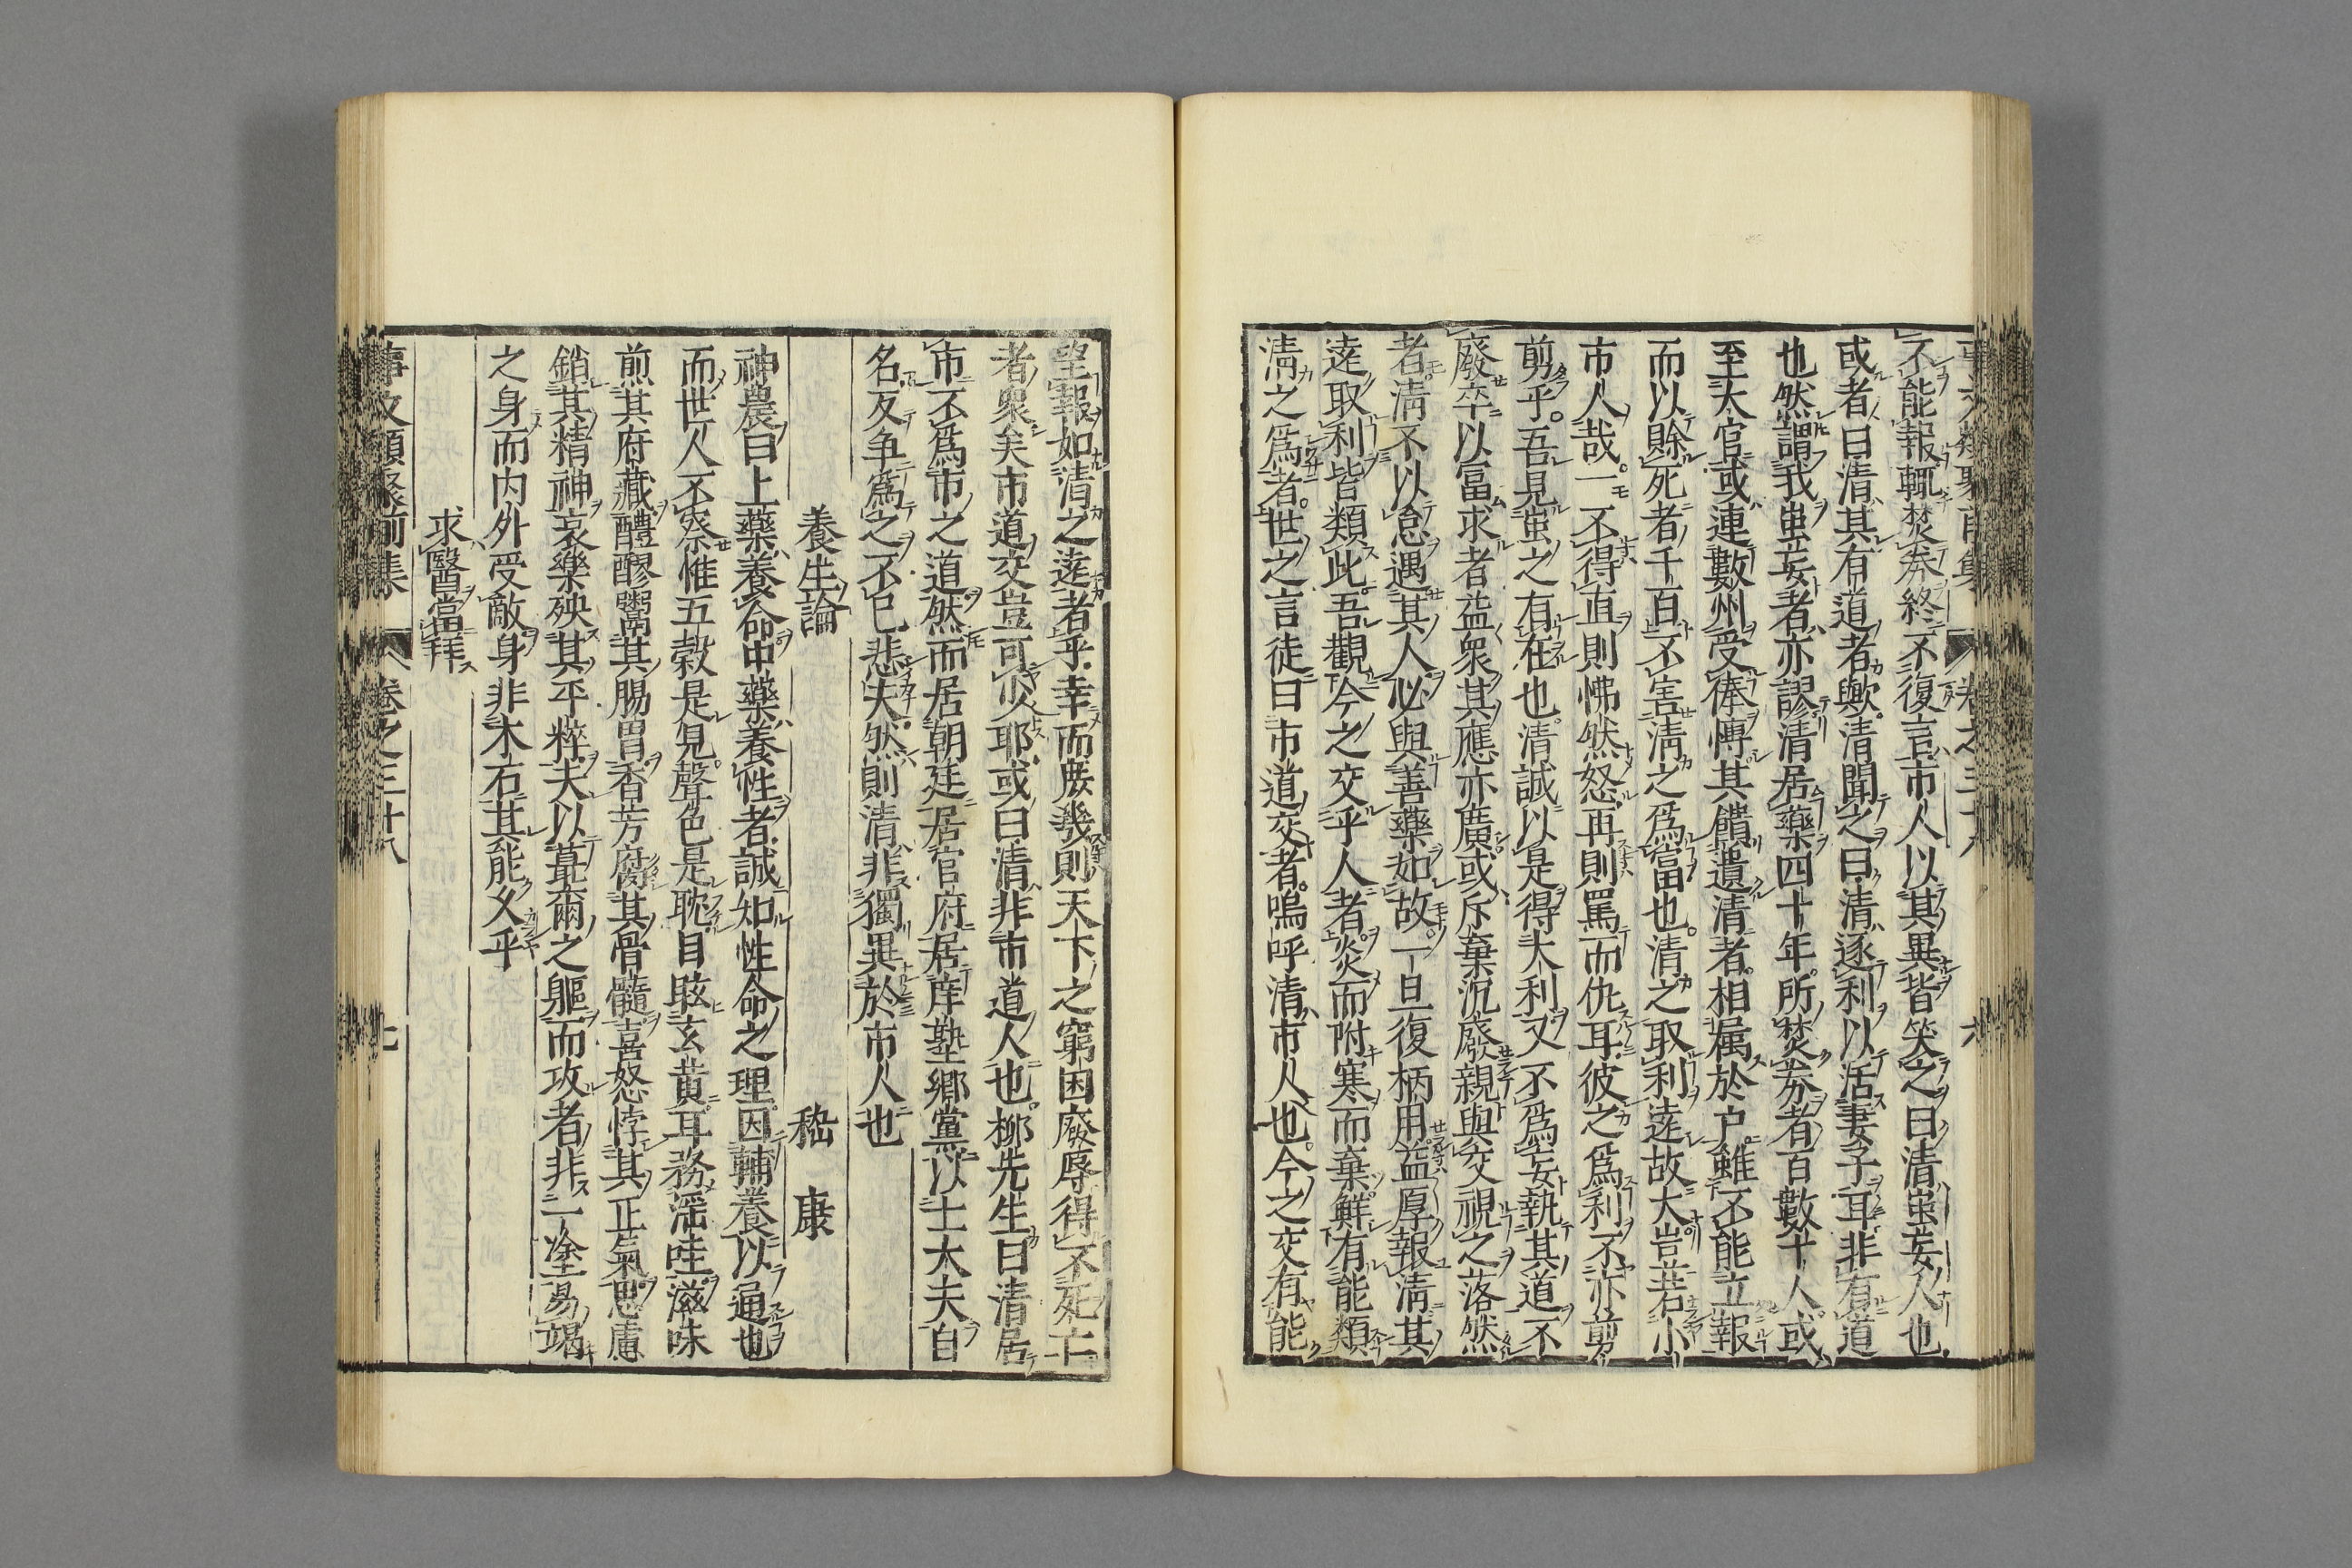 不能報輒焚券終不復言市人以其異皆笑之曰清蚩妄人也
或者曰清其有道者歟清聞之曰清逐利以活妻子耳非有道
也然謂我蚩妄者亦謬清居藥四十年所焚券者百數十人或
至大官或連數州受俸博其饋遺清者相属於户雖不能立報
而以賒死者千百不害清之爲富也清之取利遠故大豈若小
市人哉一不得直則怫然怒再則罵而仇耳彼之爲利不亦剪
剪乎吾見蚩之有在也清誠以是得大利又不爲妄執其道不
廢卒以富求者益衆其應亦廣或斥棄沉廢親與交視之落然
者清不以怠遇其人必與善藥如故一旦復柄用益厚報清其
遠取利皆類此吾觀今之交乎人者炎而附寒而棄鮮有能類
清之爲者世之言徒曰市道交者嗚呼清市人也今之交有能
望報如清之遠者乎幸而庻幾則天下之窮困廢辱得不死亡
者衆矣市道交豈可少耶或曰清非市道人也柳先生曰清居
市不爲市之道然而居朝廷居官府居庠塾鄉黨以士大夫自
名反争爲之不已悲夫然則清非獨異於市人也
養生論 嵇康
神農曰上藥養命中藥養性者誠知性命之理因輔養以通也
而世人不察惟五穀是見聲色是耽目眩玄黄耳務滛哇滋味
煎其府藏醴醪鬻其腸胃香芳腐其骨髓喜怒悖其正氣思慮
銷其精神哀樂殃其平粹夫以蕞爾之軀而攻者非一塗易竭
之身而内外受敵身非木石其能乆乎
求醫當拜
事文類聚前集 卷之三十八 七